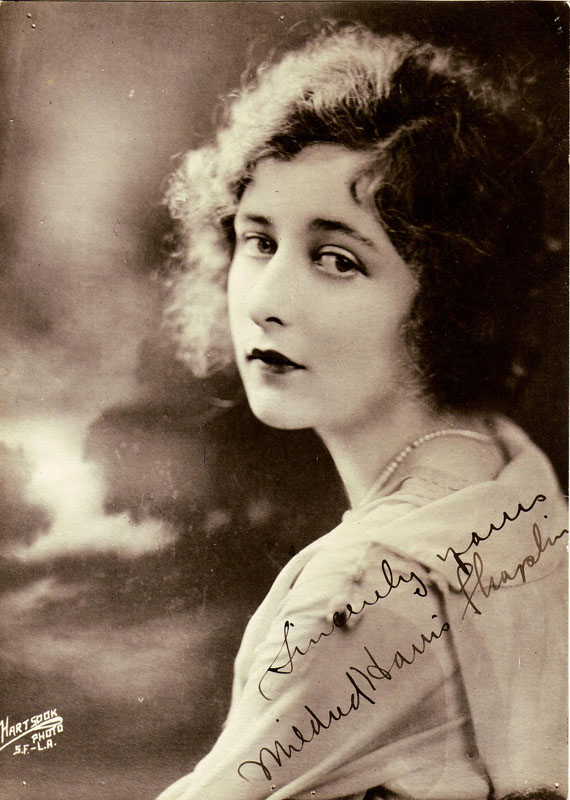 Sincerely yours
Mildred Harris Chaplin
HARTSOOK
PHOTO
S.F.-L.A.